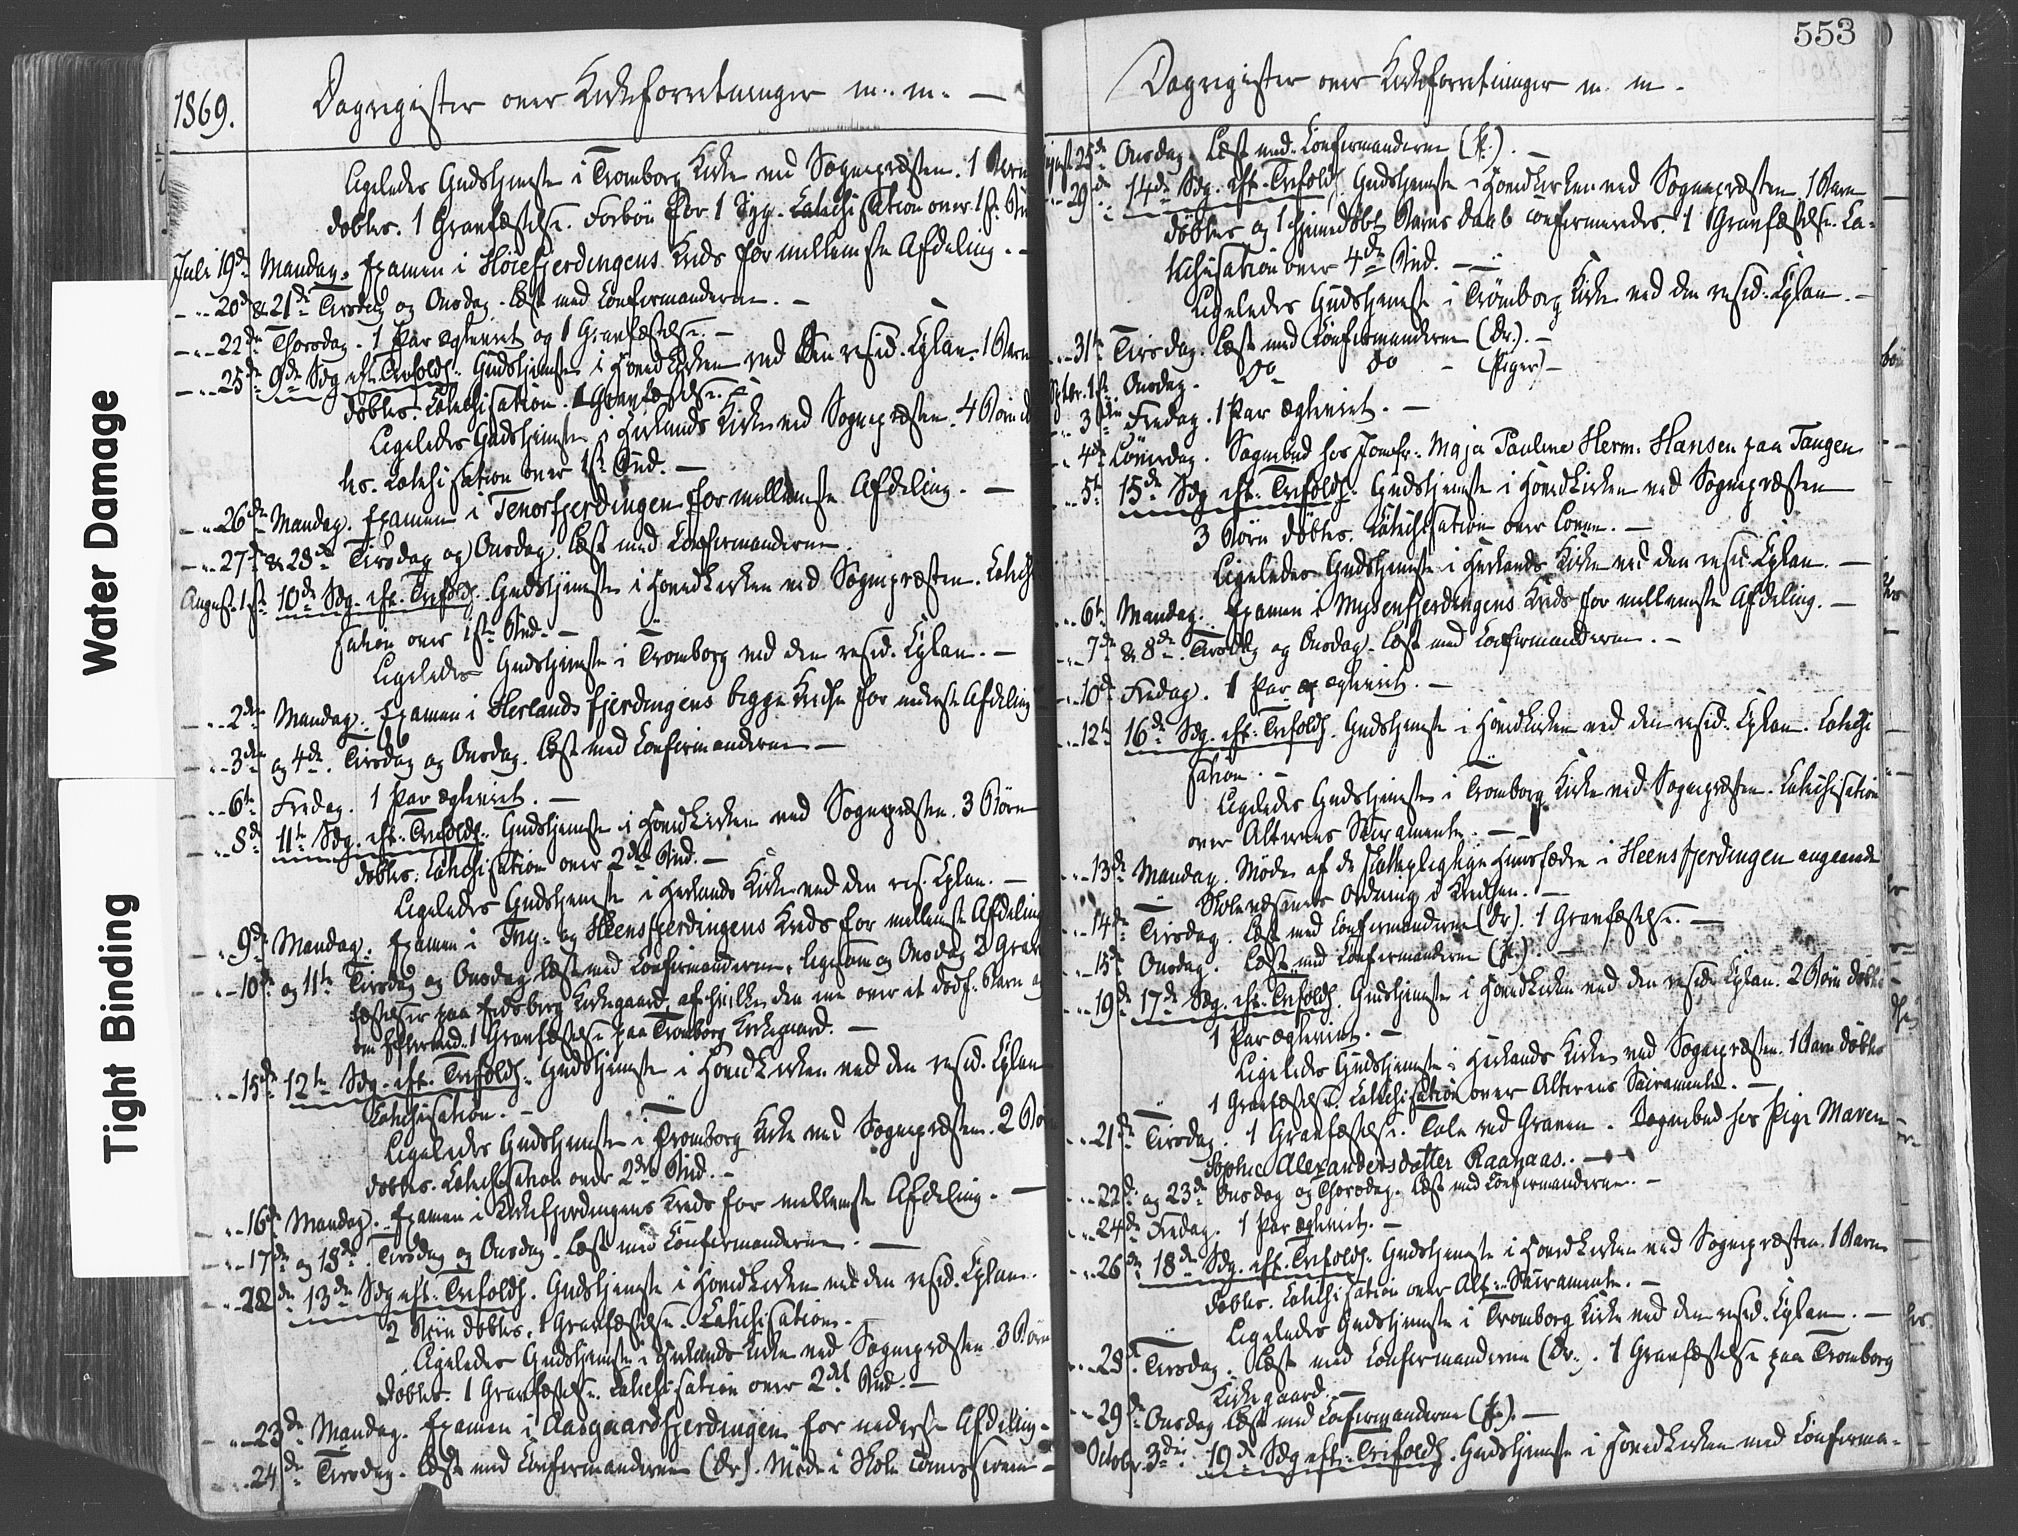 Water Damage
Tight Binding
1869.
Dagregister over Kirkeforretninger m. m. —
Ligeledes Gudstjeneste i Tromborg Kirke ved Sognepræsten. 1 Barn
døbtes. 1 Gravfæstelse. Forbøn for 1 Syg. Catechisation over 1ste
Juli 19de Mandag. Examen i Høiefjerdingens Kreds for mellemste Afdeling. -
- " - 20de & 21de Tirsdag og Onsdag. Læst med Confirmanderne. -
- " - 22de Thorsdag. 1 Par ægteviet og 1 Gravfæstelse. -
- " - 25de 9de Sdg eft. Trefoldh. Gudstjeneste i Hovedkirken ved den resid. Cplan. 1 Barn
døbtes. Catechisation. 1 Gravfæstelse. -
Ligeledes Gudstjeneste i Herlands Kirke ved Sognepræsten. 4 Børn døb
tes. Catechisation over 1ste Bud. -
- " - 26de Mandag. Examen i Tenorfjerdingen for mellemste Afdeling. -
- " - 27de & 28de Tirsdag og Onsdag. Læst med Confirmanderne.
August 1ste 10de Sdg. eft. Trefoldh. Gudstjeneste i Hovedkirken ved Sognepræsten. Catechi
sation over 1ste Bud. -
Ligeledes Gudstjeneste i Tromborg ved den resid. Cplan. -
- " - 2den Mandag. Examen i Herlandsfjerdingens begge Kredse for nederste Afdeling
- " - 3die og 4de. Tirsdag og Onsdag. Læst med Confirmanderne -
- " - 6te Fredag. 1 Par ægteviet. -
- " - 8de 11te Sdg. eft. Trefoldh. Gudstjeneste i Hovedkirken ved Sognepræsten. 3 Børn
døbtes. Catechisation over 2det Bud. -
Ligeledes Gudstjeneste i Herlands Kirke ved den res. Cplan. -
- " - 9de Mandag. Examen i Trøg- og Heensfjerdingens Kreds for mellemste Afdeling
- " - 10de og 11te Tirsdag og Onsdag læst med Confirmanderne, ligesom og Onsdag 3 Grav
fæstelser paa Eidsberg Kirkegaard, af hvilke den ene over et dødf. Barn og
om Eftermd. 1 Gravfæstelse paa Tromborg Kirkegaard. -
- " - 15de 12te Sdg. eft. Trefoldh. Gudstjeneste i Hovedkirken ved den resid. Cplan
Catechisation. -
Ligeledes Gudstjeneste i Tromborg Kirke ved Sognepræsten. 2 Børn
døbtes. Catechisation over 2det Bud. -
- " - 16de Mandag. Examen i Kirkefjerdingens Kreds for mellemste Afdeling. -
- " - 17de og 18de. Tirsdag og Onsdag. Læst med Confirmanderne. -
- " - 22de 13de Sdg eft. Trefoldh. Gudstjeneste i Hovedkirken ved den resid. Cplan.
2 Børn døbtes. 1 Gravfæstelse. Catechisation. -
Ligeledes Gudstjeneste i Herlands Kirke ved Sognepræsten. 3 Børn
døbtes. 1 Gravfæstelse. Catechisation over 2det Bud. -
- " - 23de Mandag. Examen i Aasgaardfjerdingen for nederste Afdeling. -
- " - 24de Tirsdag. Læst med Confirmanderne (Dr). Møde i Skole Comissionen -
553
Dagregister over Kirkeforretninger m. m. -
August 25de Onsdag. Læst med Confirmanderne (P.). -
- " - 29de 14de Sdg. eft. Trefoldh. Gudstjeneste i Hovedkirken ved Sognepræsten 1 Barn
døbtes og 1 hjemmedøbt Barns Daab confirmeredes. 1 Gravfæstelse. Ca-
techisation over 4de Bud. -
Ligeledes Gudstjeneste i Tromborg Kirke ved den resid. Cplan. -
- " - 31te Tirsdag. Læst med Confirmanderne (Dr.). -
Sptbr. 1ste Onsdag. Do Do - (Piger) -
- " - 3die Fredag. 1 Par ægteviet. -
- " - 4de Løverdag. Sognebud hos Jomfr. Maja Pauline Herm. Hansen paa Tangen
- " - 5te 15de Sdg. eft. Trefoldh. Gudstjeneste i Hovedkirken ved Sognepræsten
3 Børn døbtes. Catechisation over Loven. -
Ligeledes Gudstjeneste i Herlands Kirke ved den resid. Cplan. -
- " - 6te Mandag. Examen i Mysenfjerdingens Kreds for mellemste Afdeling. -
- " - 7de & 8de. Tirsdag og Onsdag. Læst med Confirmanderne. -
- " - 10de Fredag. 1 Par ægteviet. -
- " - 12te 16de Sdg. eft. Trefoldh. Gudstjeneste i Hovedkirken ved den resid. Cplan. Catechi
sation. -
Ligeledes Gudstjeneste i Tromborg Kirke ved Sognepræsten. Catechisation
over Alterens Sacramente. -
- " - 13de Mandag. Møde af de skattepligtige Huusfædre i Heensfjerdingen angaaende
Skolevæsenets Ordning i Kredsen. -
- " - 14de Tirsdag. Læst med Confirmanderne (Dr). 1 Gravfæstelse. -
- " - 15de Onsdag. Læst med Confirmanderne (P.). -
- " - 19de 17de Sdg. eft. Trefoldh. Gudstjeneste i Hovedkirken ved den resid. Cplan. 2 Børn døbtes
1 Par ægteviet. -
Ligeledes Gudstjeneste i Herlands Kirke ved Sognepræsten. 1 Barn døbtes
1 Gravfæstelse. Catechisation over Alterens Sacramente. -
- " - 21de Tirsdag. 1 Gravfæstelse. Tale ved Graven. Sognebud hos Pige Maren
Sophie Alexandersdatter Raanaas. -
- " - 22de og 23de Onsdag og Thorsdag. Læst med Confirmanderne. -
- " - 24de Fredag. 1 Par ægteviet. -
- " - 26de 18de Sdg. eft. Trefoldh. Gudstjeneste i Hovedkirken ved Sognepræsten. 1 Barn
døbtes. Catechisation over Alt. Sacramente. -
Ligeledes Gudstjeneste i Tromborg Kirke ved den resid. Cplan. -
- " - 28de Tirsdag. Læst med Confirmanderne (Dr.). 1 Gravfæstelse paa Tromborg
Kirkegaard. -
- " - 29de Onsdag Læst med Confirmanderne (P.). -
Octobr. 3die 19de Sdg eft. Trefoldh. Gudstjeneste i Hovedkirken med Confirma-